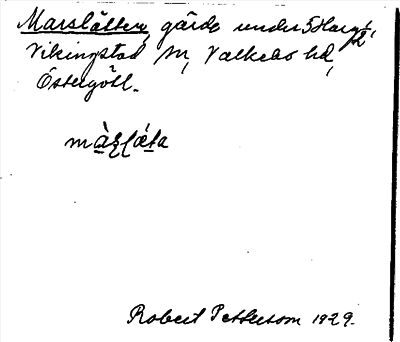 Marslätten, gärde under 5 Harg,
Vikingstad sn, Valkebo hd,
Östergötl.
Robert Pettersson 1929.